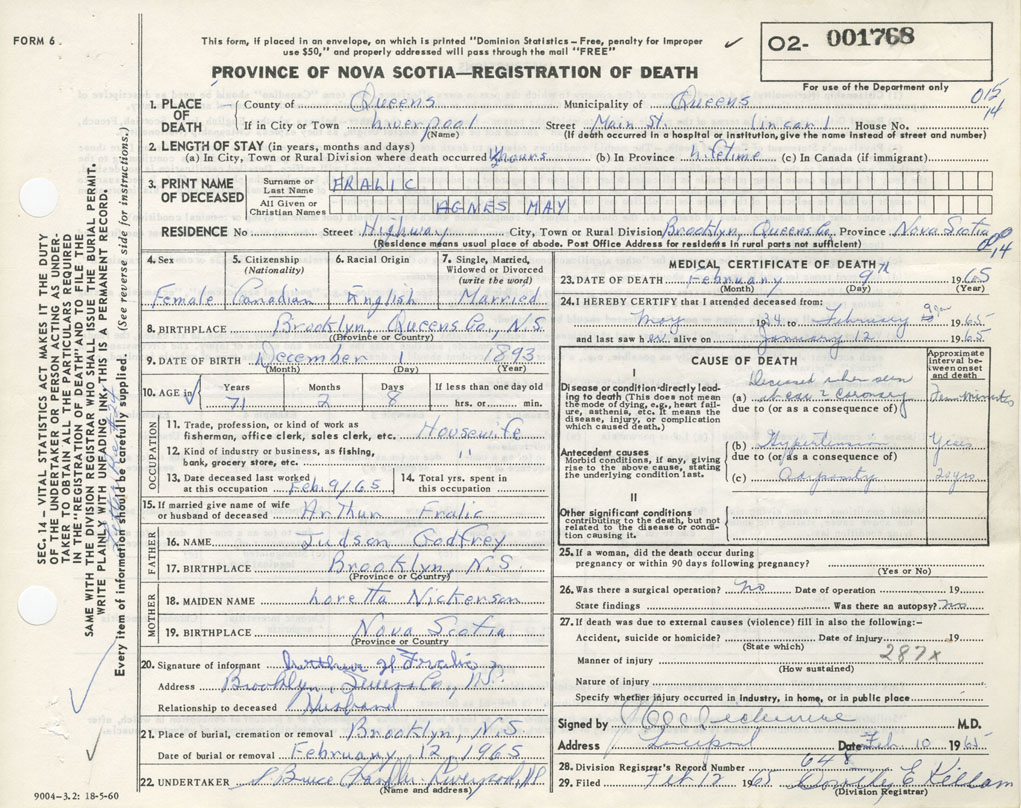 FORM 6.
This form, if placed in an envelope, on which is printed "Dominion Statistics – Free, penalty for improper
use $50," and properly addressed will pass through the mail "FREE"
O2- 001768
For use of the Department only
PROVINCE OF NOVA SCOTIA—REGISTRATION OF DEATH
015
14
1. PLACE OF DEATH
County of Queens Municipality of Queens
If in City or Town Liverpool Street Main St. House No.
(Name) (If death occurred in a hospital or institution, give the name instead of street and number)
2. LENGTH OF STAY (in years, months and days)
(a) In City, Town or Rural Division where death occurred hours (b) In Province lifetime (c) In Canada (if immigrant)
3. PRINT NAME OF DECEASED
Surname or Last Name FRALIC
All Given or Christian Names AGNES MAY
RESIDENCE No Street Highway City, Town or Rural Division Brooklyn, Queens Co. Province Nova Scotia
(Residence means usual place of abode. Post Office Address for residents in rural parts not sufficient)
14
4. Sex
Female
5. Citizenship (Nationality)
Canadian
6. Racial Origin
English
7. Single, Married, Widowed or Divorced (write the word)
Married
8. BIRTHPLACE Brooklyn, Queens Co., N.S.
(Province or Country)
9. DATE OF BIRTH December 1 1893
(Month) (Day) (Year)
10. AGE in
Years Months Days If less than one day old
71 2 8 hrs. or min.
OCCUPATION
11. Trade, profession, or kind of work as fisherman, office clerk, sales clerk, etc. Housewife
12. Kind of industry or business, as fishing, bank, grocery store, etc. "
13. Date deceased last worked at this occupation Feb. 9/65
14. Total yrs. spent in this occupation
15. If married give name of wife or husband of deceased Arthur Fralic
FATHER
16. NAME Judson Godfrey
17. BIRTHPLACE Brooklyn, N.S.
(Province or Country)
MOTHER
18. MAIDEN NAME Loretta Nickerson
19. BIRTHPLACE Nova Scotia
(Province or Country
20. Signature of informant Arthur H Fralic
Address Brooklyn, Queens Co., N.S.
Relationship to deceased Husband
21. Place of burial, cremation or removal Brooklyn, N.S.
Date of burial or removal February, 12, 1965
22. UNDERTAKER Bruce
(Name and address)
9004-3.2: 18-5-60
MEDICAL CERTIFICATE OF DEATH
23. DATE OF DEATH February 9th 1965
(Month) (Day) (Year)
24. I HEREBY CERTIFY that I attended deceased from:
May 1934 to February 9 1965
and last saw her alive on January 12 1965
CAUSE OF DEATH
Approximate interval between onset and death
I
Disease or condition directly leading to death (This does not mean the mode of dying, e.g., heart failure, asthenia, etc. It means the disease, injury, or complication which caused death.)
Deceased when seen
(a) coronary minutes
due to (or as a consequence of)
Antecedent causes
Morbid conditions, if any, giving rise to the above cause, stating the underlying condition last.
(b) Hypertension Years
due to (or as a consequence of)
(c) Adiposity 20 yrs
II
Other significant conditions
contributing to the death, but not related to the disease or condition causing it.
25. If a woman, did the death occur during
pregnancy or within 90 days following pregnancy?
(Yes or No)
26. Was there a surgical operation? No Date of operation 19
State findings Was there an autopsy? No
27. If death was due to external causes (violence) fill in also the following:-
Accident, suicide or homicide? Date of injury 19
(State which)
287x
Manner of injury
(How sustained)
Nature of injury
Specify whether injury occurred in industry, in home, or in public place
Signed by M.D.
Address Liverpool Date Feb 10 1965
28. Division Registrar's Record Number 648
29. Filed Feb 12 1965 Dorothy E Killam
(Division Registrar)
SEC. 14 — VITAL STATISTICS ACT MAKES IT THE DUTY
OF THE UNDERTAKER OR PERSON ACTING AS UNDER-
TAKER TO OBTAIN ALL THE PARTICULARS REQUIRED
IN THE "REGISTRATION OF DEATH" AND TO FILE THE
SAME WITH THE DIVISION REGISTRAR WHO SHALL ISSUE THE BURIAL PERMIT.
WRITE PLAINLY WITH UNFADING INK, THIS IS A PERMANENT RECORD.
Every item of information should be carefully supplied. (See reverse side for instructions.)